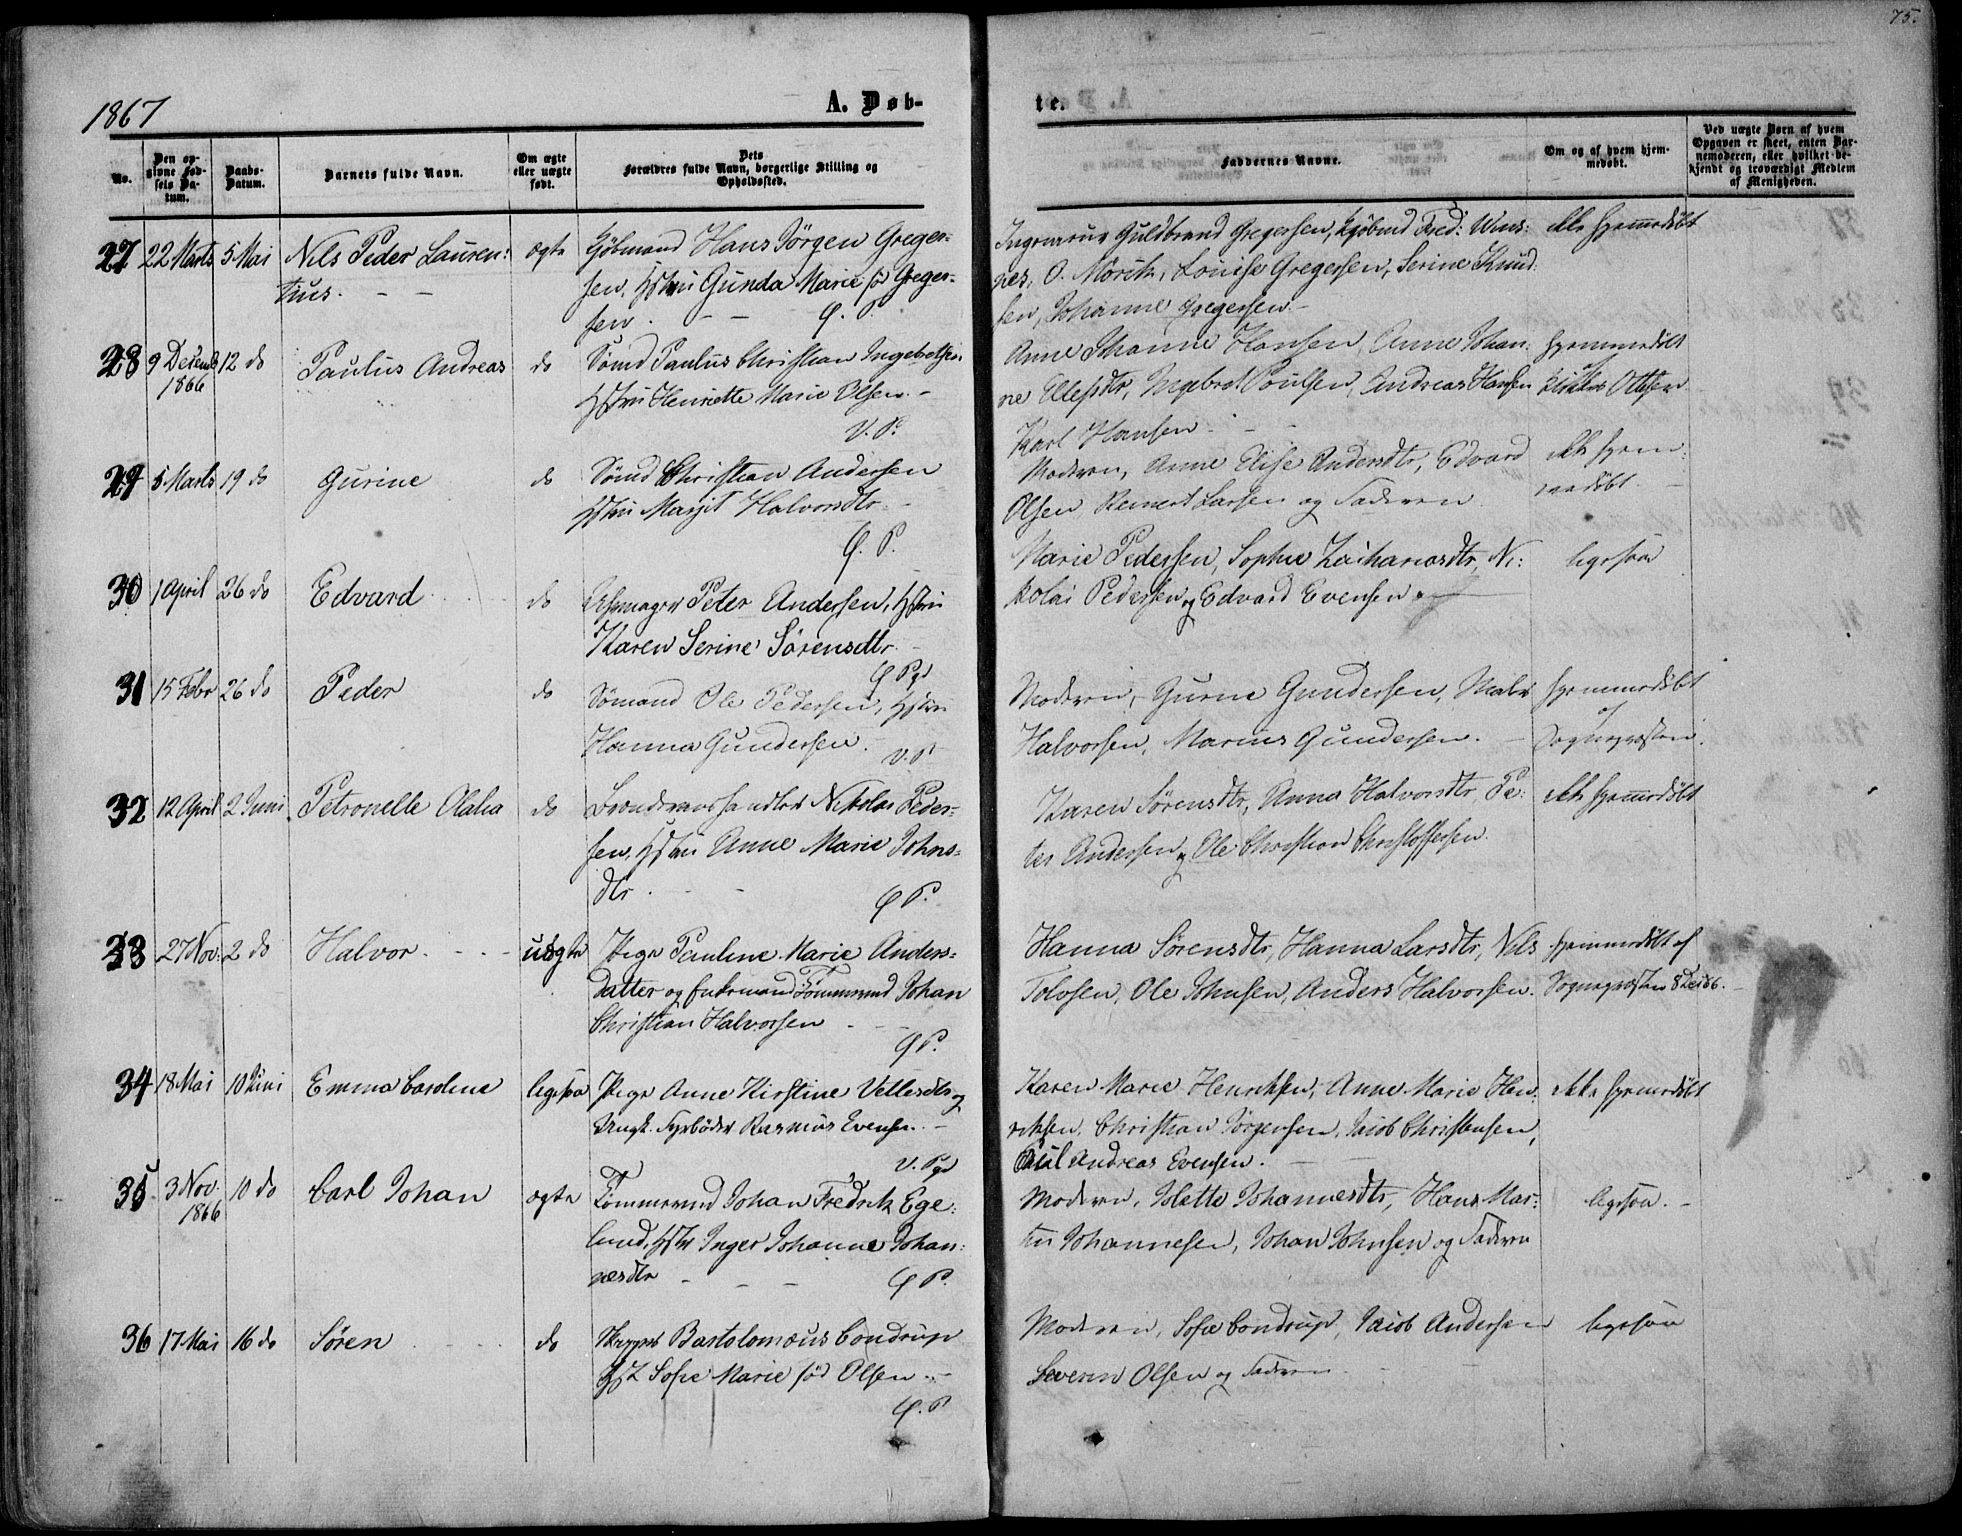 75.
1867
A. Døb-
te.
No.
Den opgivne Fødsels Datum.
Daabs-Datum.
Barnets fulde Navn.
Om ægte eller uægte født.
Dets Forældres fulde Navn, borgerlige Stilling og Opholdssted.
Faddernes Navne.
Om og af hvem hjemmedøbt.
Ved uægte Børn af hvem Opgaven er skeet, enten Barnemoderen, eller hvilket bekjendt og troværdigt Medlem af Menigheden.
27 22 Marts 5 Mai Nils Peder Lauren: ægte Kjøbmand Hans Jörgen Greger-
tius. sen, Hstru Gunda Marie fød Greger-
sen.
Guldbrand Gregersen, Kjöbmd Fred:
O. Mörch, Louise Gregersen, Serine Knud-
sen, Johanne Gregersen
ikke hjemmedöbt
28 9 Decemb 12 do Paulus Andreas do Sömd Paulus Christian Ingebretsen
1866 Hstru Henriette Marie Olsen.
V. P.
Anne Johanne Hansen, Anne Johan-
ne Ellefsdtr, Ingebret Poulsen, Andreas Hansen
Karl Hansen
hjemmedöbt
af
Ottesen
29 5 Marts 19 do Gurine do Sömd Christian Andersen
Hstru Margit Halvorsdtr
Moderen, Anne Elise Andersdtr, Edvard
Olsen, Reinert Larsen og Faderen
ikke hjem-
medöbt.
30 1 April 26 do Edvard do Peter Andersen, Hstru
Karen Serine Sörensdtr.
Marie Pedersen, Sophie Zachariasdtr, Ni-
kolai Pedersen og Edvard Evensen
ligesaa
31 15 Febr 26 do Peder do Sömand Ole Pedersen, Hstru
Hanna Gundersen.
V. P.
Moderen, Gurine Gundersen,
Halvorsen, Marius Gundersen.
hjemmedöbt
af
Sognepræsten.
32 12 April 2 Juni Petronelle Olalia do Brændeviinshandler Nikolai Peder-
sen, Hstru Anne Marie Johns-
dtr.
Karen Sörensdtr, Anna Halvorsdtr, Pe-
ter Andersen og Ole Christian Christoffersen
ikke hjemmedöbt
33 27 Nov. 2 do Halvor uægte Pige Pauline Marie Anders-
datter og Enkemand Tömmermd Johan
Christian Halvorsen
Hanna Sörensdtr, Hanna Larsdtr, Nils
Tolofsen, Ole Johnsen, Anders Halvorsen.
hjemmedöbt af
Sognepræsten 8 Dec 66.
34 18 Mai 10 Juni Emma Caroline ligesaa Pige Anne Kirstine Vetlesdtr og
Ungk. Fyrböder Rasmus Evensen
Karen Marie Henriksen, Anne Marie Hen-
riksen, Christian Jörgensen, Jacob Christensen,
Paul Andreas Evensen.
ikke hjemmedöbt
35 3 Nov. 10 do Carl Johan ægte Tömmermd Johan Fredrik Ege-
1866 lund, Hstr Inger Johanne Johan-
nesdtr
Moderen, Jolette Johannesdtr, Hans Mar-
tin Johannesen, Johan Johnsen og Faderen
ligesaa.
36 17 Mai 16 do Sören do Skipper Bartolomæus Condrup
Hst Sofie Marie föd Olsen
Moderen, Sofie Condrup, Jacob Andersen
Severin Olsen og Faderen
ligesaa